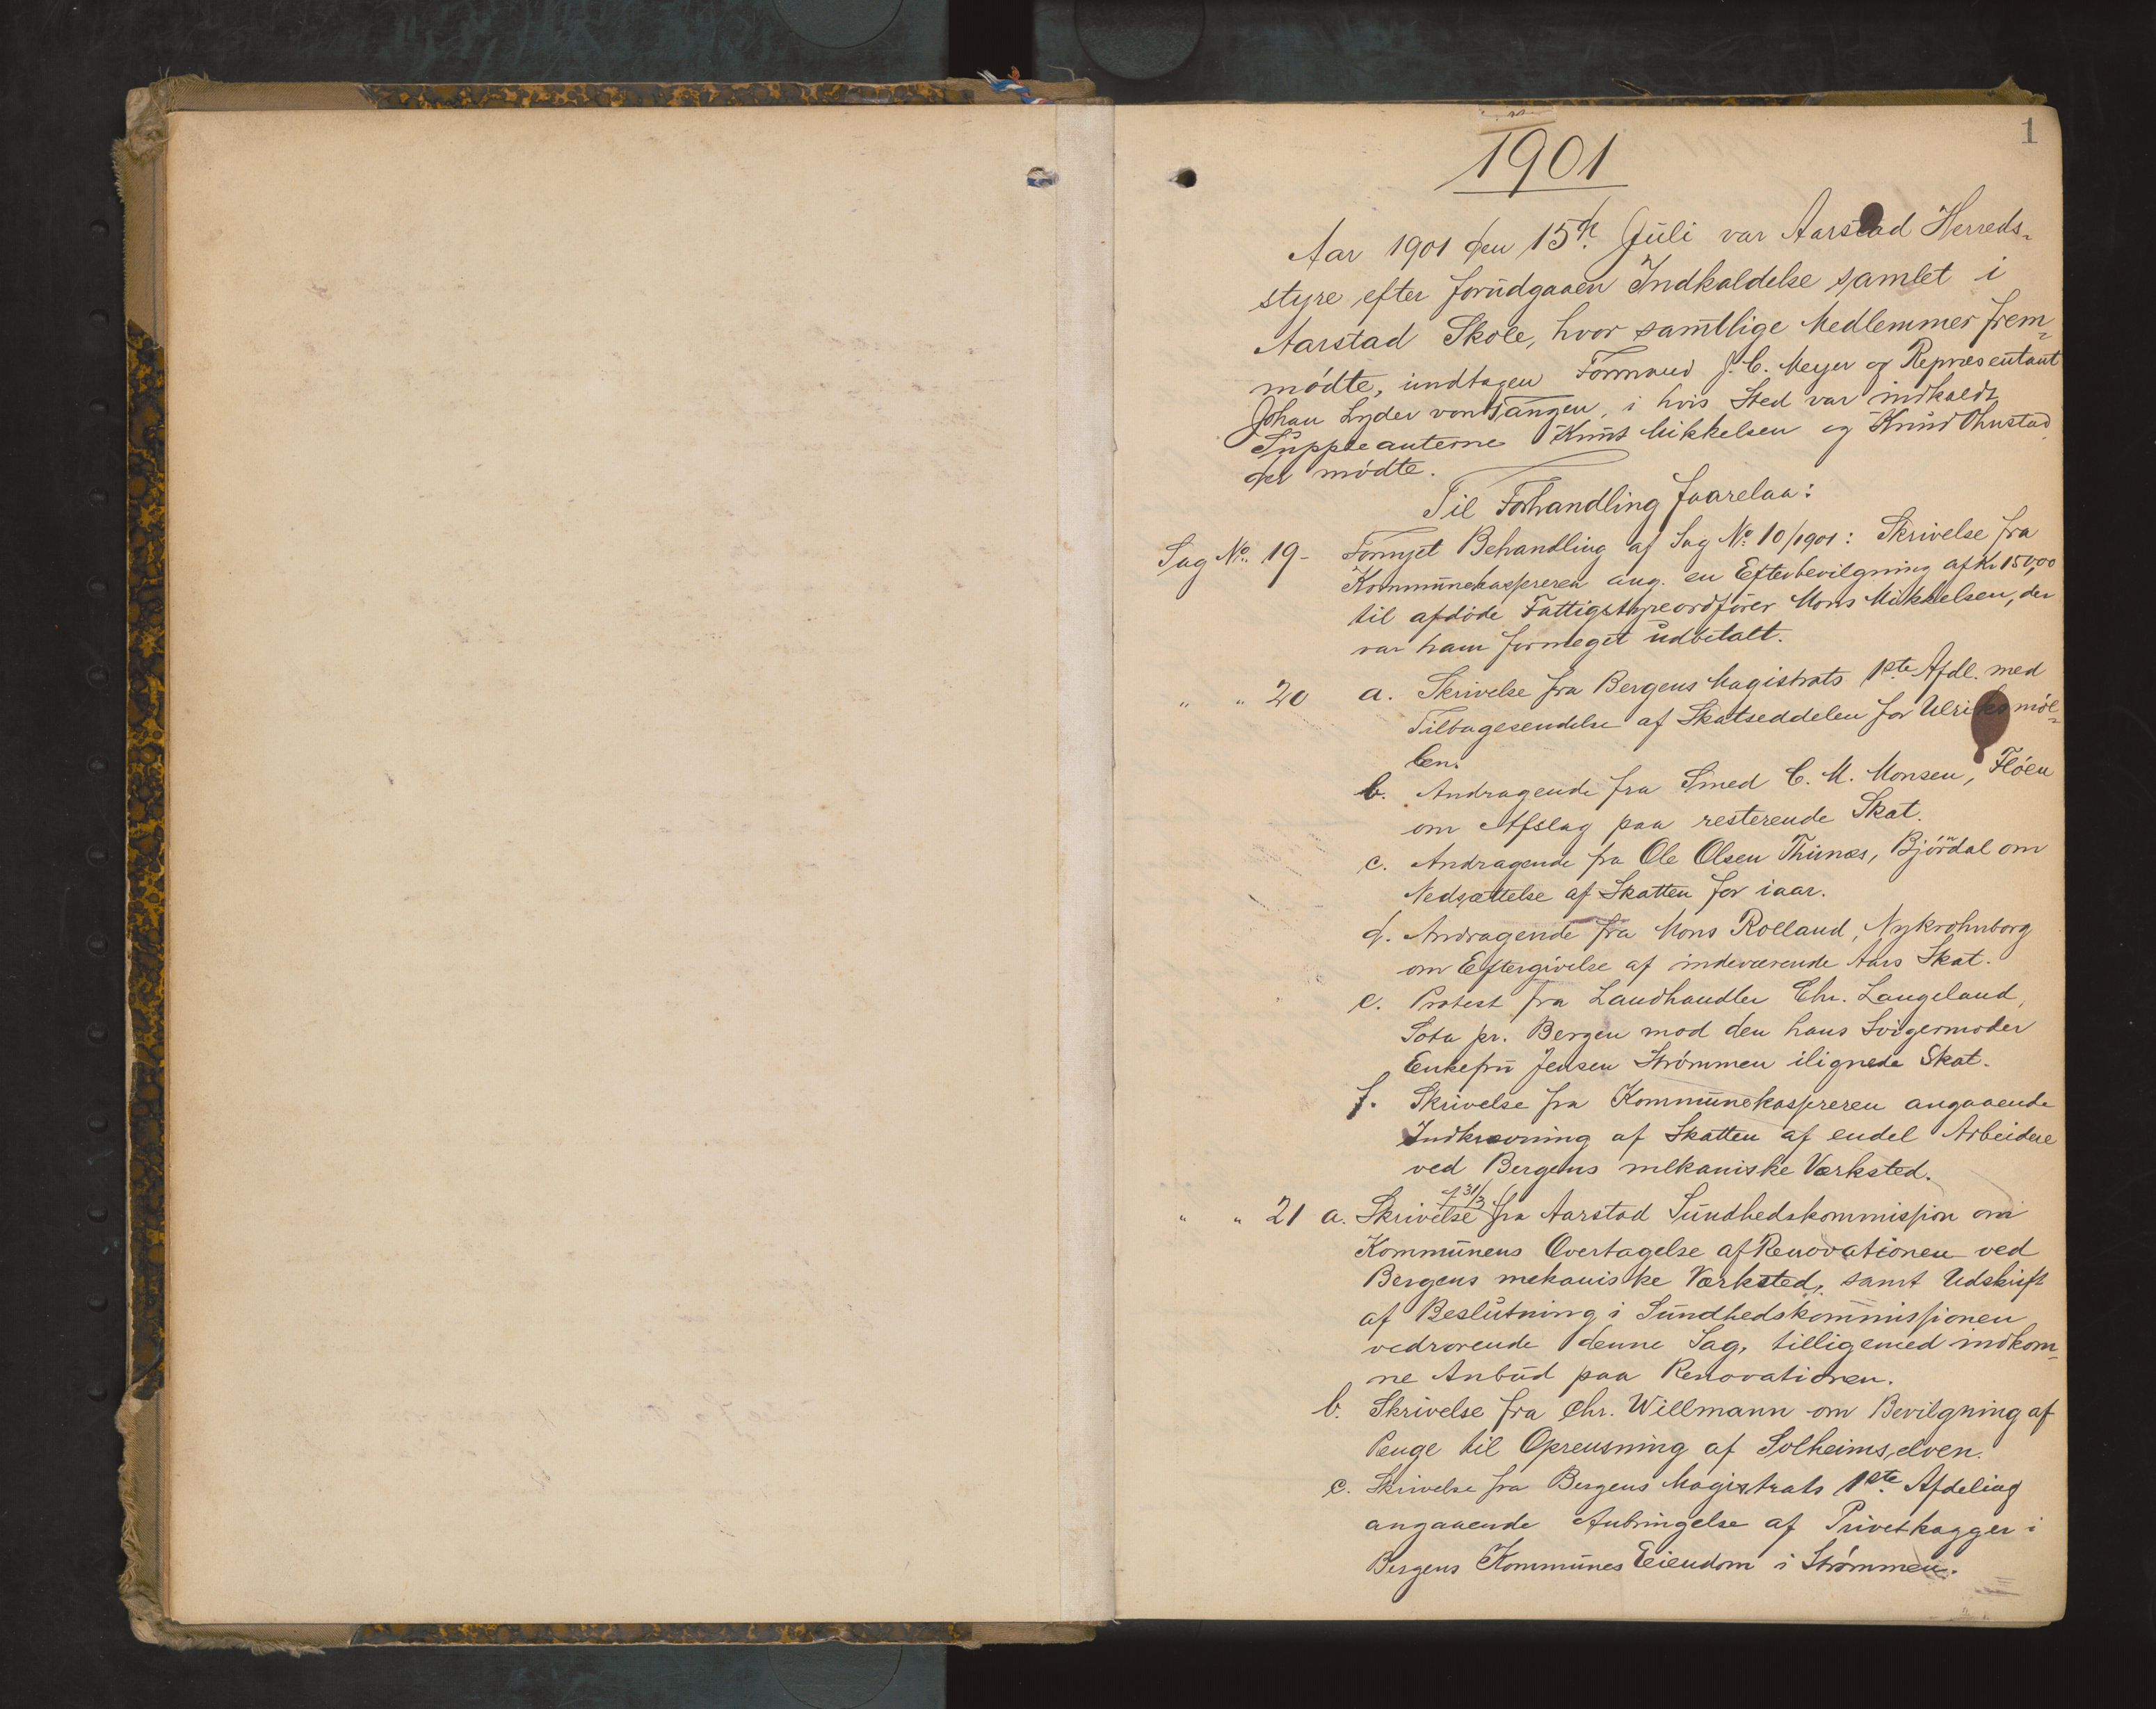 1
1901
Aar 1901 den 15de Juli var Aarstad Herreds-
styre efter forudgaaen Indkaldelse samlet i
Aarstad Skole, hvor samtlige Medlemmer frem-
mødte, undtagen Formand J. C. Meyer og Repræsentant
Johan Lyder von Tangen, i hvis Sted var indkaldt
Suppleanterne Knut Mikkelsen og Knud
der mødte.
Til Forhandling foorelaa:
Sag No. 19- Fornyet Behandling af Sag No. 10/1901: Skrivelse fra
Kommunekassereren ang. en Efterbevilgning af Kr 150,00
til afdøde Fattigstyreordfører Mons Mikkelsen, der
var ham formeget udbetalt.
" " 20 a. Skrivelse fra Bergens Magistrats 1ste Afdl. med
Tilbagesendelse af Skatseddelen for Ulriksmøl-
len.
b. Andragende fra Smed C. M. Monsen, Fløen
om Afslag paa resterende Skat.
c. Andragende fra Ole Olsen Thunæs, Bjørndal om
Nedsættelse af Skatten for iaar.
d. Andragende fra Mons Rolland, Nykrohnborg
om Eftergivelse af indeværende Aars Skat.
e. Protest fra Landhandler Chr. Langeland,
Sota pr. Bergen mod den hans Svigermoder
Enkefru Jensen Strømmen ilignede Skat.
f. Skrivelse fra Kommunekassereren angaaende
Indkrævning af Skatten af endel Arbeidere
ved Bergens mekaniske Værksted.
" " 21 a. Skrivelse af 31/3 fra Aarstad Sundhedskommission om
Kommunens Overtagelse af Renovationen ved
Bergens mekaniske Værksted, samt Udskrift
af Beslutning i Sundhedskommissionen
vedrorende denne Sag, tilligemed indkom-
ne Anbud paa Renovationen.
b. Skrivelse fra Chr. Willmann om Bevilgning af
Penge til Oprensning af Solheimselven.
c. Skrivelse fra Bergens Magistrats 1ste Afdeling
angaaende Anbringelse af Privetkagger i
Bergens Kommunes Eiendom i Strømmen.